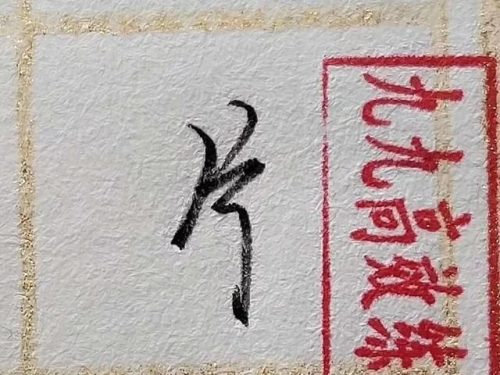 片
九九高效练